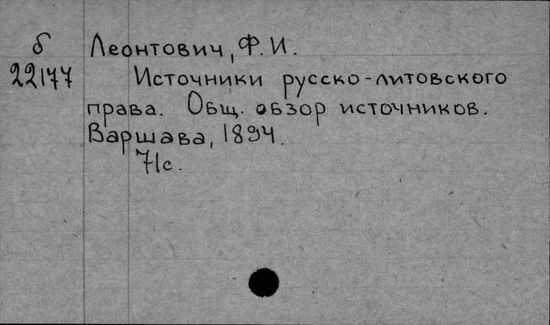 б Леонтович, Ф. И.
22177 Источники русско-литовского
права. Общ. обзор источников.
Варшава, 1894.
71с.